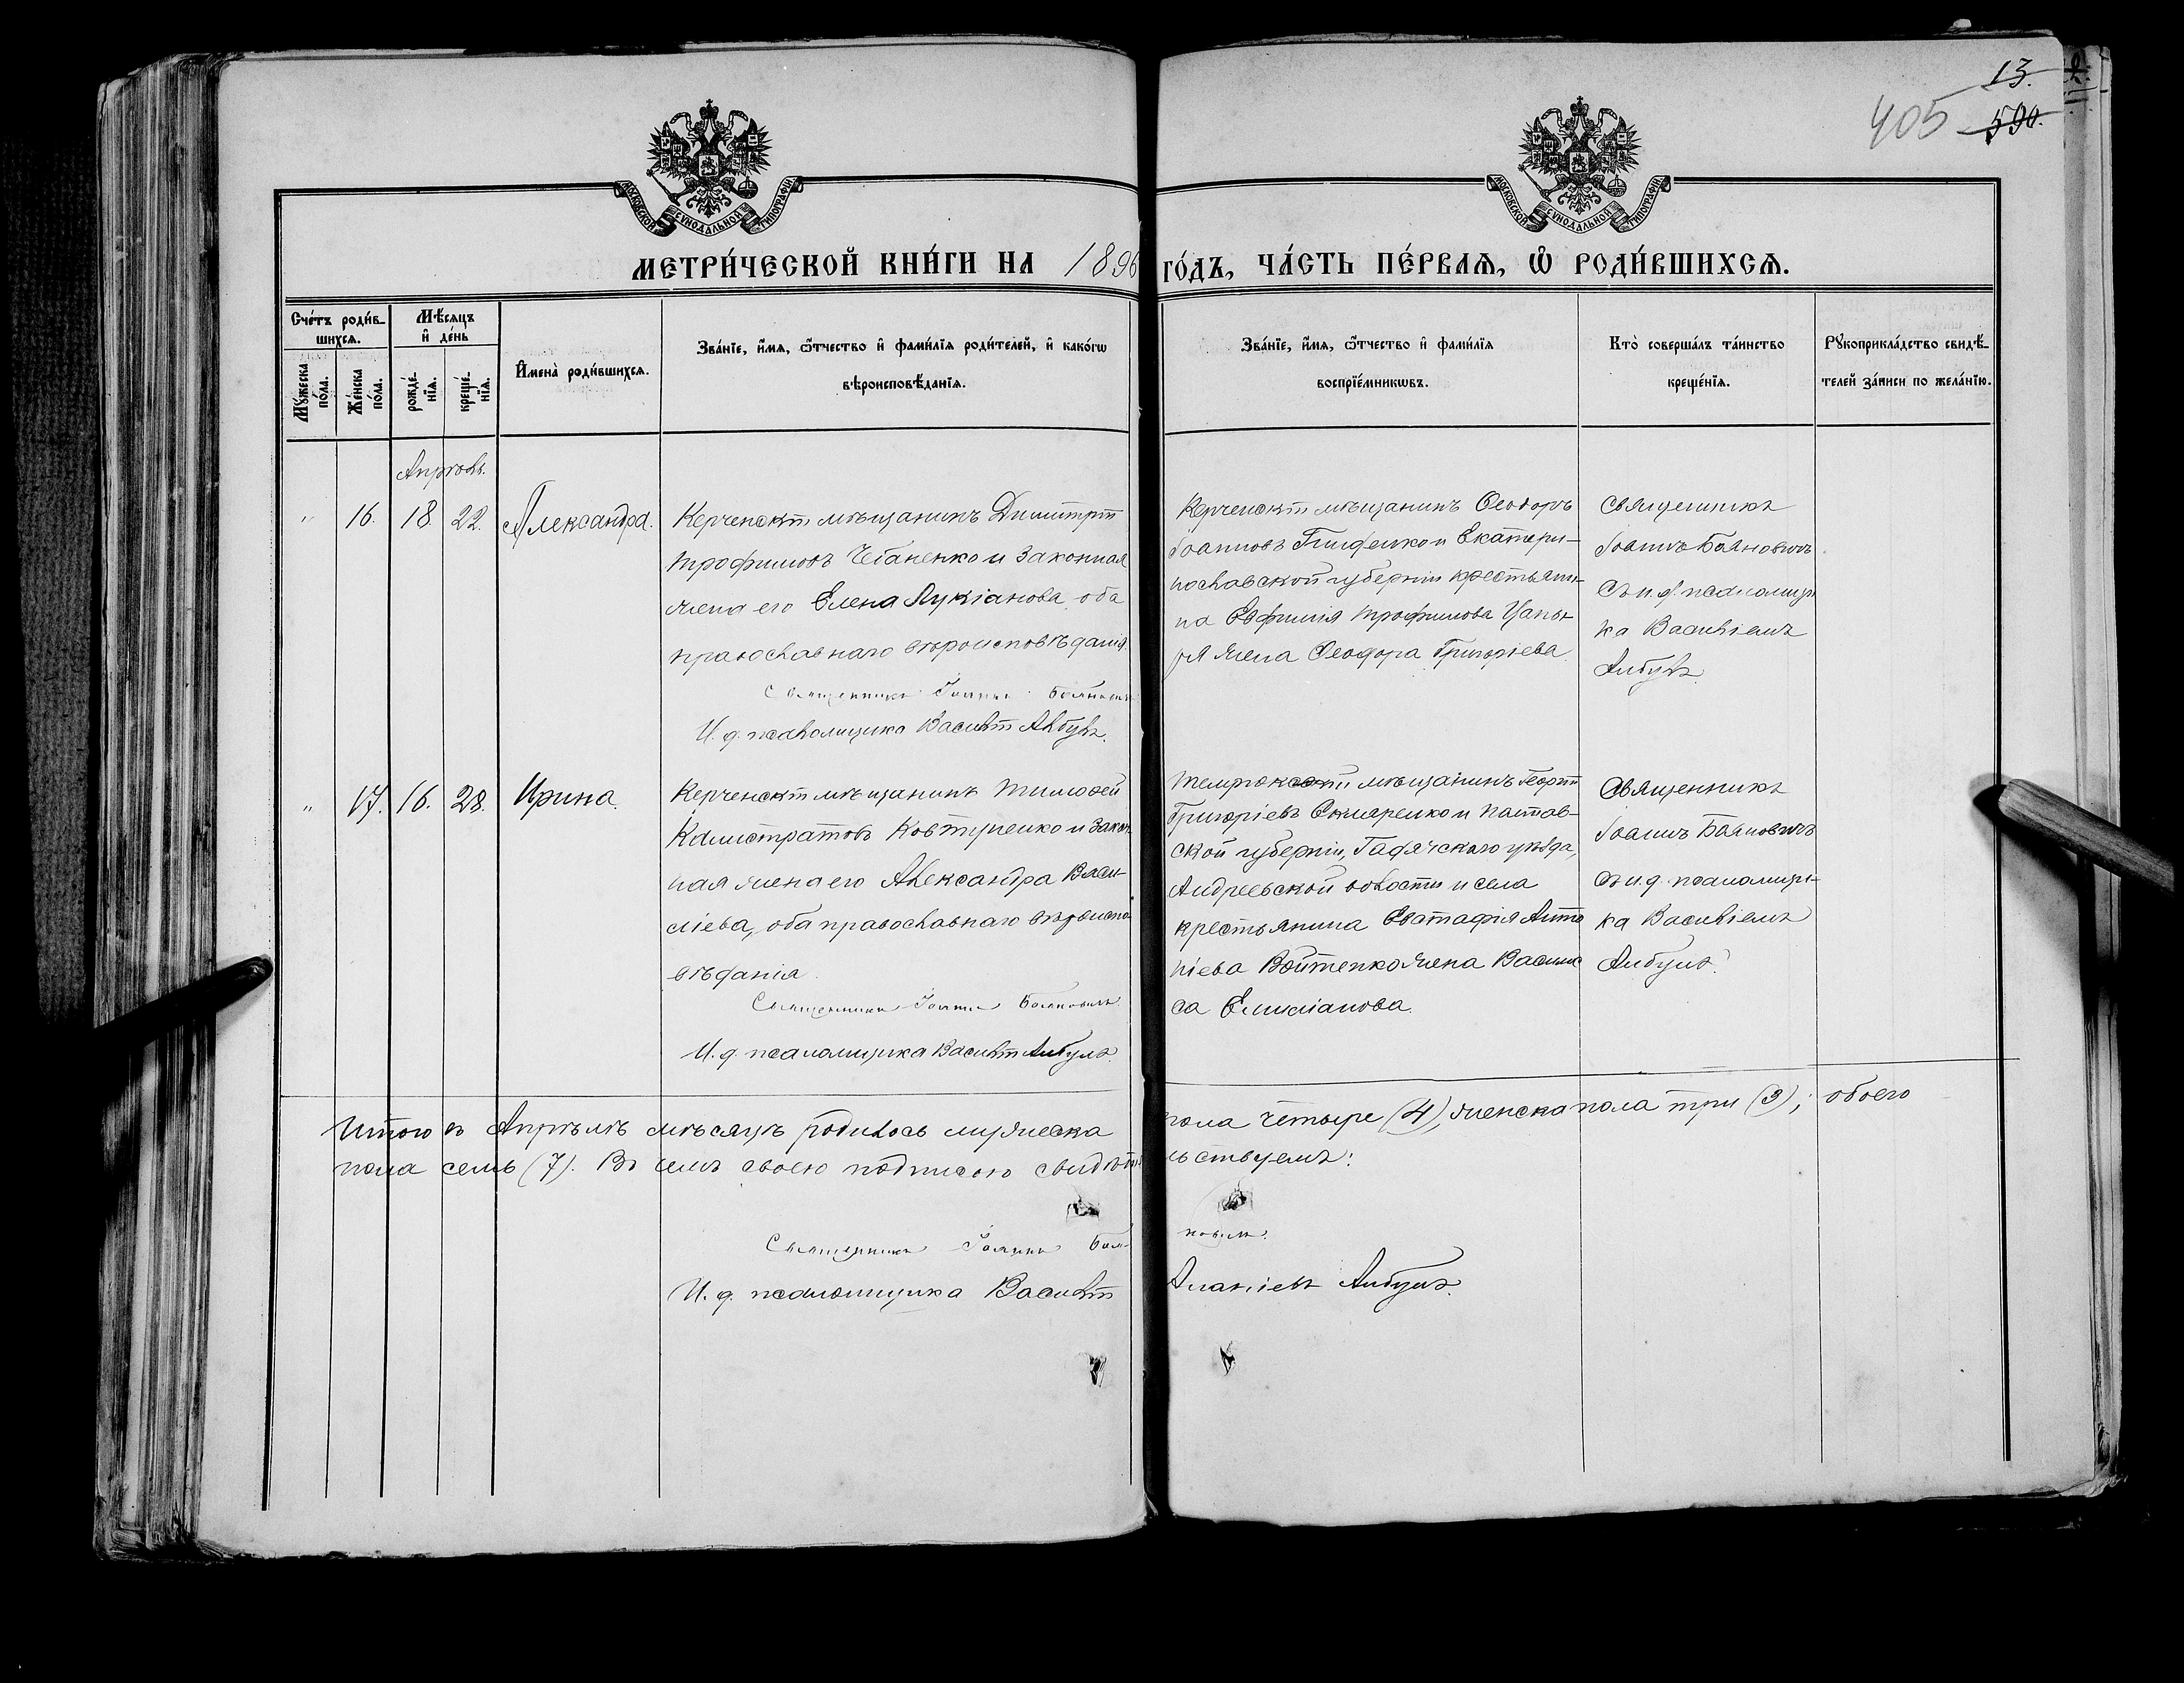 13.
2.
405 590.
МОСКОВСКОЙ СѴНОДАЛЬНОЙ ТИПОГРАФІИ
МОСКОВСКОЙ СѴНОДАЛЬНОЙ ТИПОГРАФІИ
МЕТРИ́ЧЕСКОЙ КНИ́ГИ НА 1896 ГО́ДЪ, ЧА́СТЬ ПЕ́РВАѦ, Ѡ҆ РОДИ́ВШИХСѦ.
Сче́тъ роди́в-
шихсѧ.
Мꙋ́жеска по́ла.
Же́нска по́ла.
Мѣ́сѧцъ
и҆ де́нь
рожде́-нїѧ.
креще́-нїѧ.
И҆мена̀ роди́вшихсѧ.
Зва́нїе, и҆́мѧ, ѻ҆́тчество и҆ фами́лїѧ роди́телей, и҆ како́гѡ
вѣроисповѣ́данїѧ.
Зва́нїе, и҆́мѧ, ѻ҆́тчество и҆ фами́лїѧ
воспрїе́мникѡвъ.
Кто̀ соверша́лъ та́инство
креще́нїѧ.
Рꙋкоприкла́дство свидѣ́-
телей за́писи по жела́нїю.
Апрѣль.
" 16. 18. 22. Александра.
Керченскій мѣщанинъ Димитрій
Трофимовъ Чебаненко и законная
жена его Елена Лукіанова, оба
православнаго вѣроисповѣданія.
Священникъ Іоаннъ Бояновичъ
И. д. псаломщика Василій Албулъ.
Керченскій мѣщанинъ Ѳеодоръ
Іоанновъ и Екатери-
нославской губерніи крестьяни-
на Евфимія Трофимова
жена Ѳеодора Григоріева.
Священникъ
Іоаннъ Бояновичъ
съ и. д. псаломщи-
ка Василіемъ
Албулъ.
" 17. 16. 28. Ирина.
Керченскій мѣщанинъ Тимоѳей
Калистратовъ Ковтуненко и закон-
ная жена его Александра Васи-
ліева, оба православнаго вѣроиспо-
вѣданія.
Священникъ Іоаннъ Бояновичъ
И. д. псаломщика Василій Албулъ.
Темрюкскій мѣщанинъ Георгій
Григоріевъ Скляренко и Полтав-
ской губерніи, Гадячскаго уѣзда,
Андреевской волости и села
крестьянина Евстафія Анто
ніева Войтенко жена Васили
са Емиліанова.
Священникъ
Іоаннъ Бояновичъ
съ и. д. псаломщи-
ка Василіемъ
Албулъ.
Итого въ Апрѣлѣ мѣсяцѣ родилось мужеска пола четыре (4), женска пола три (3); обоего
пола семь (7). Въ чемъ своею подписью свидѣтельствуемъ:
Священникъ Іоаннъ Бояновичъ.
И. д. псаломщика Василій Ананіевъ Албулъ.